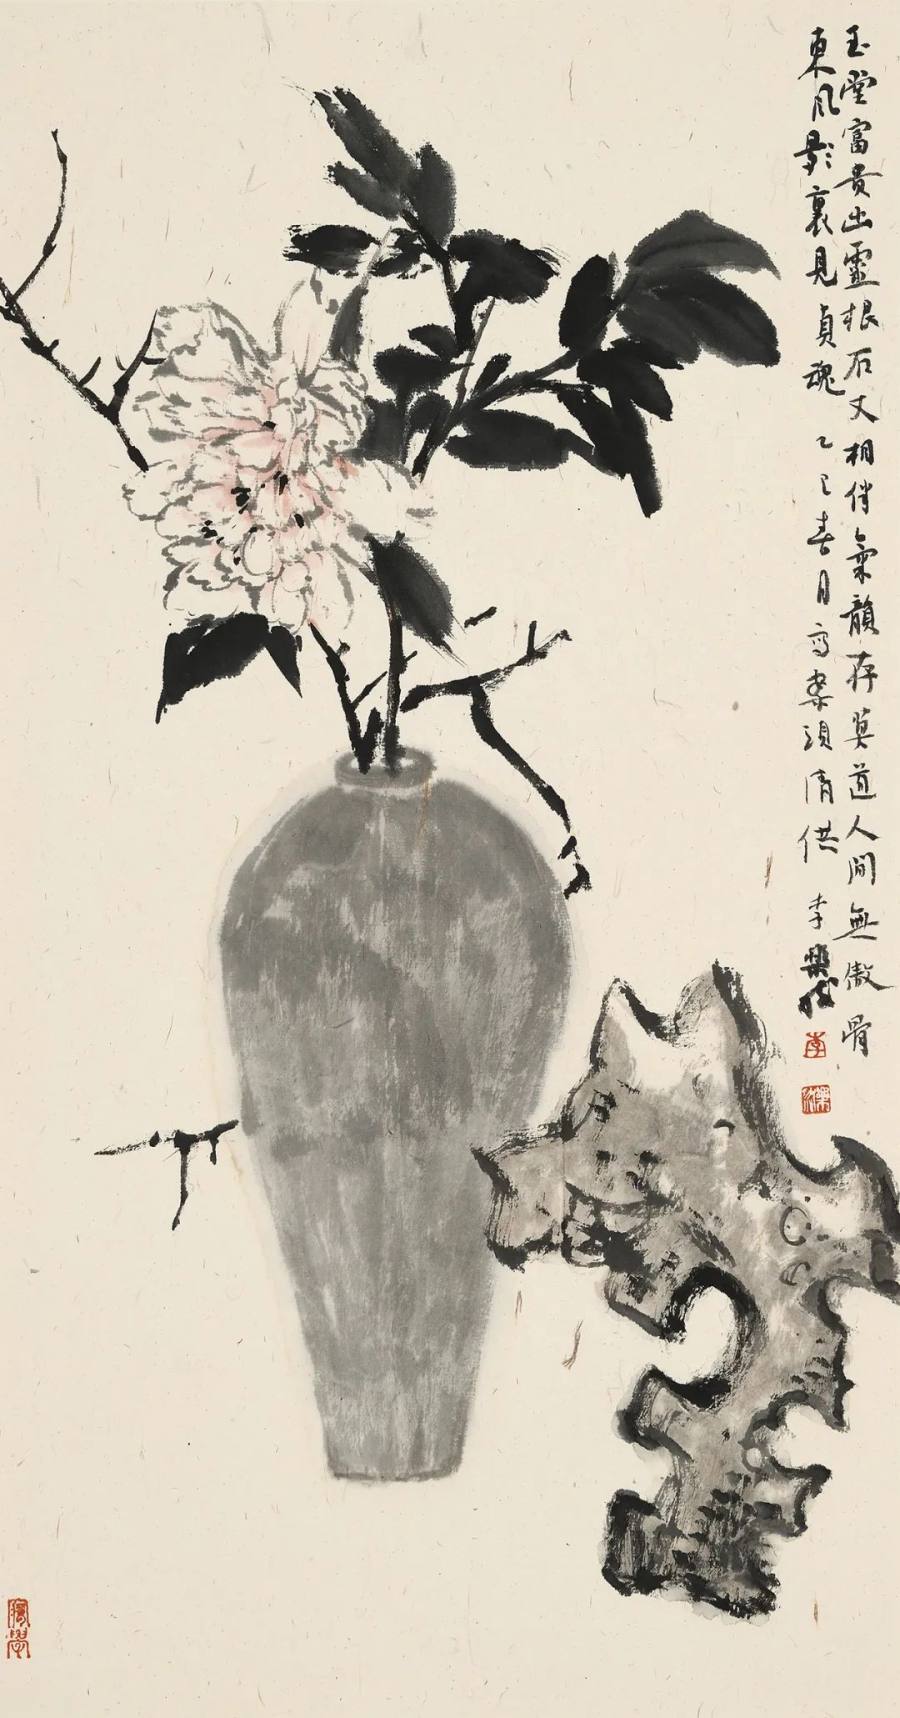 玉堂富貴出靈根石丈相伴氣韻存莫道人間無傲骨
東風影裏見貞魂 乙巳春月寫案頭清供 李
李